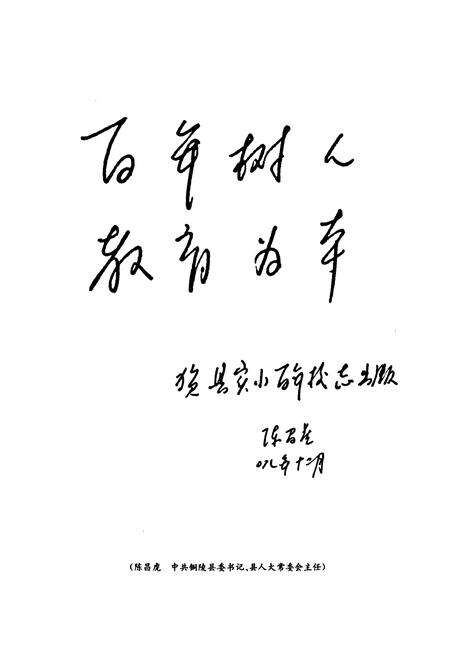 百年树人
教育为本
贺县实小百年校志出版
陈昌虎
〇八年十二月
(陈昌虎　中共铜陵县委书记、县人大常委会主任)